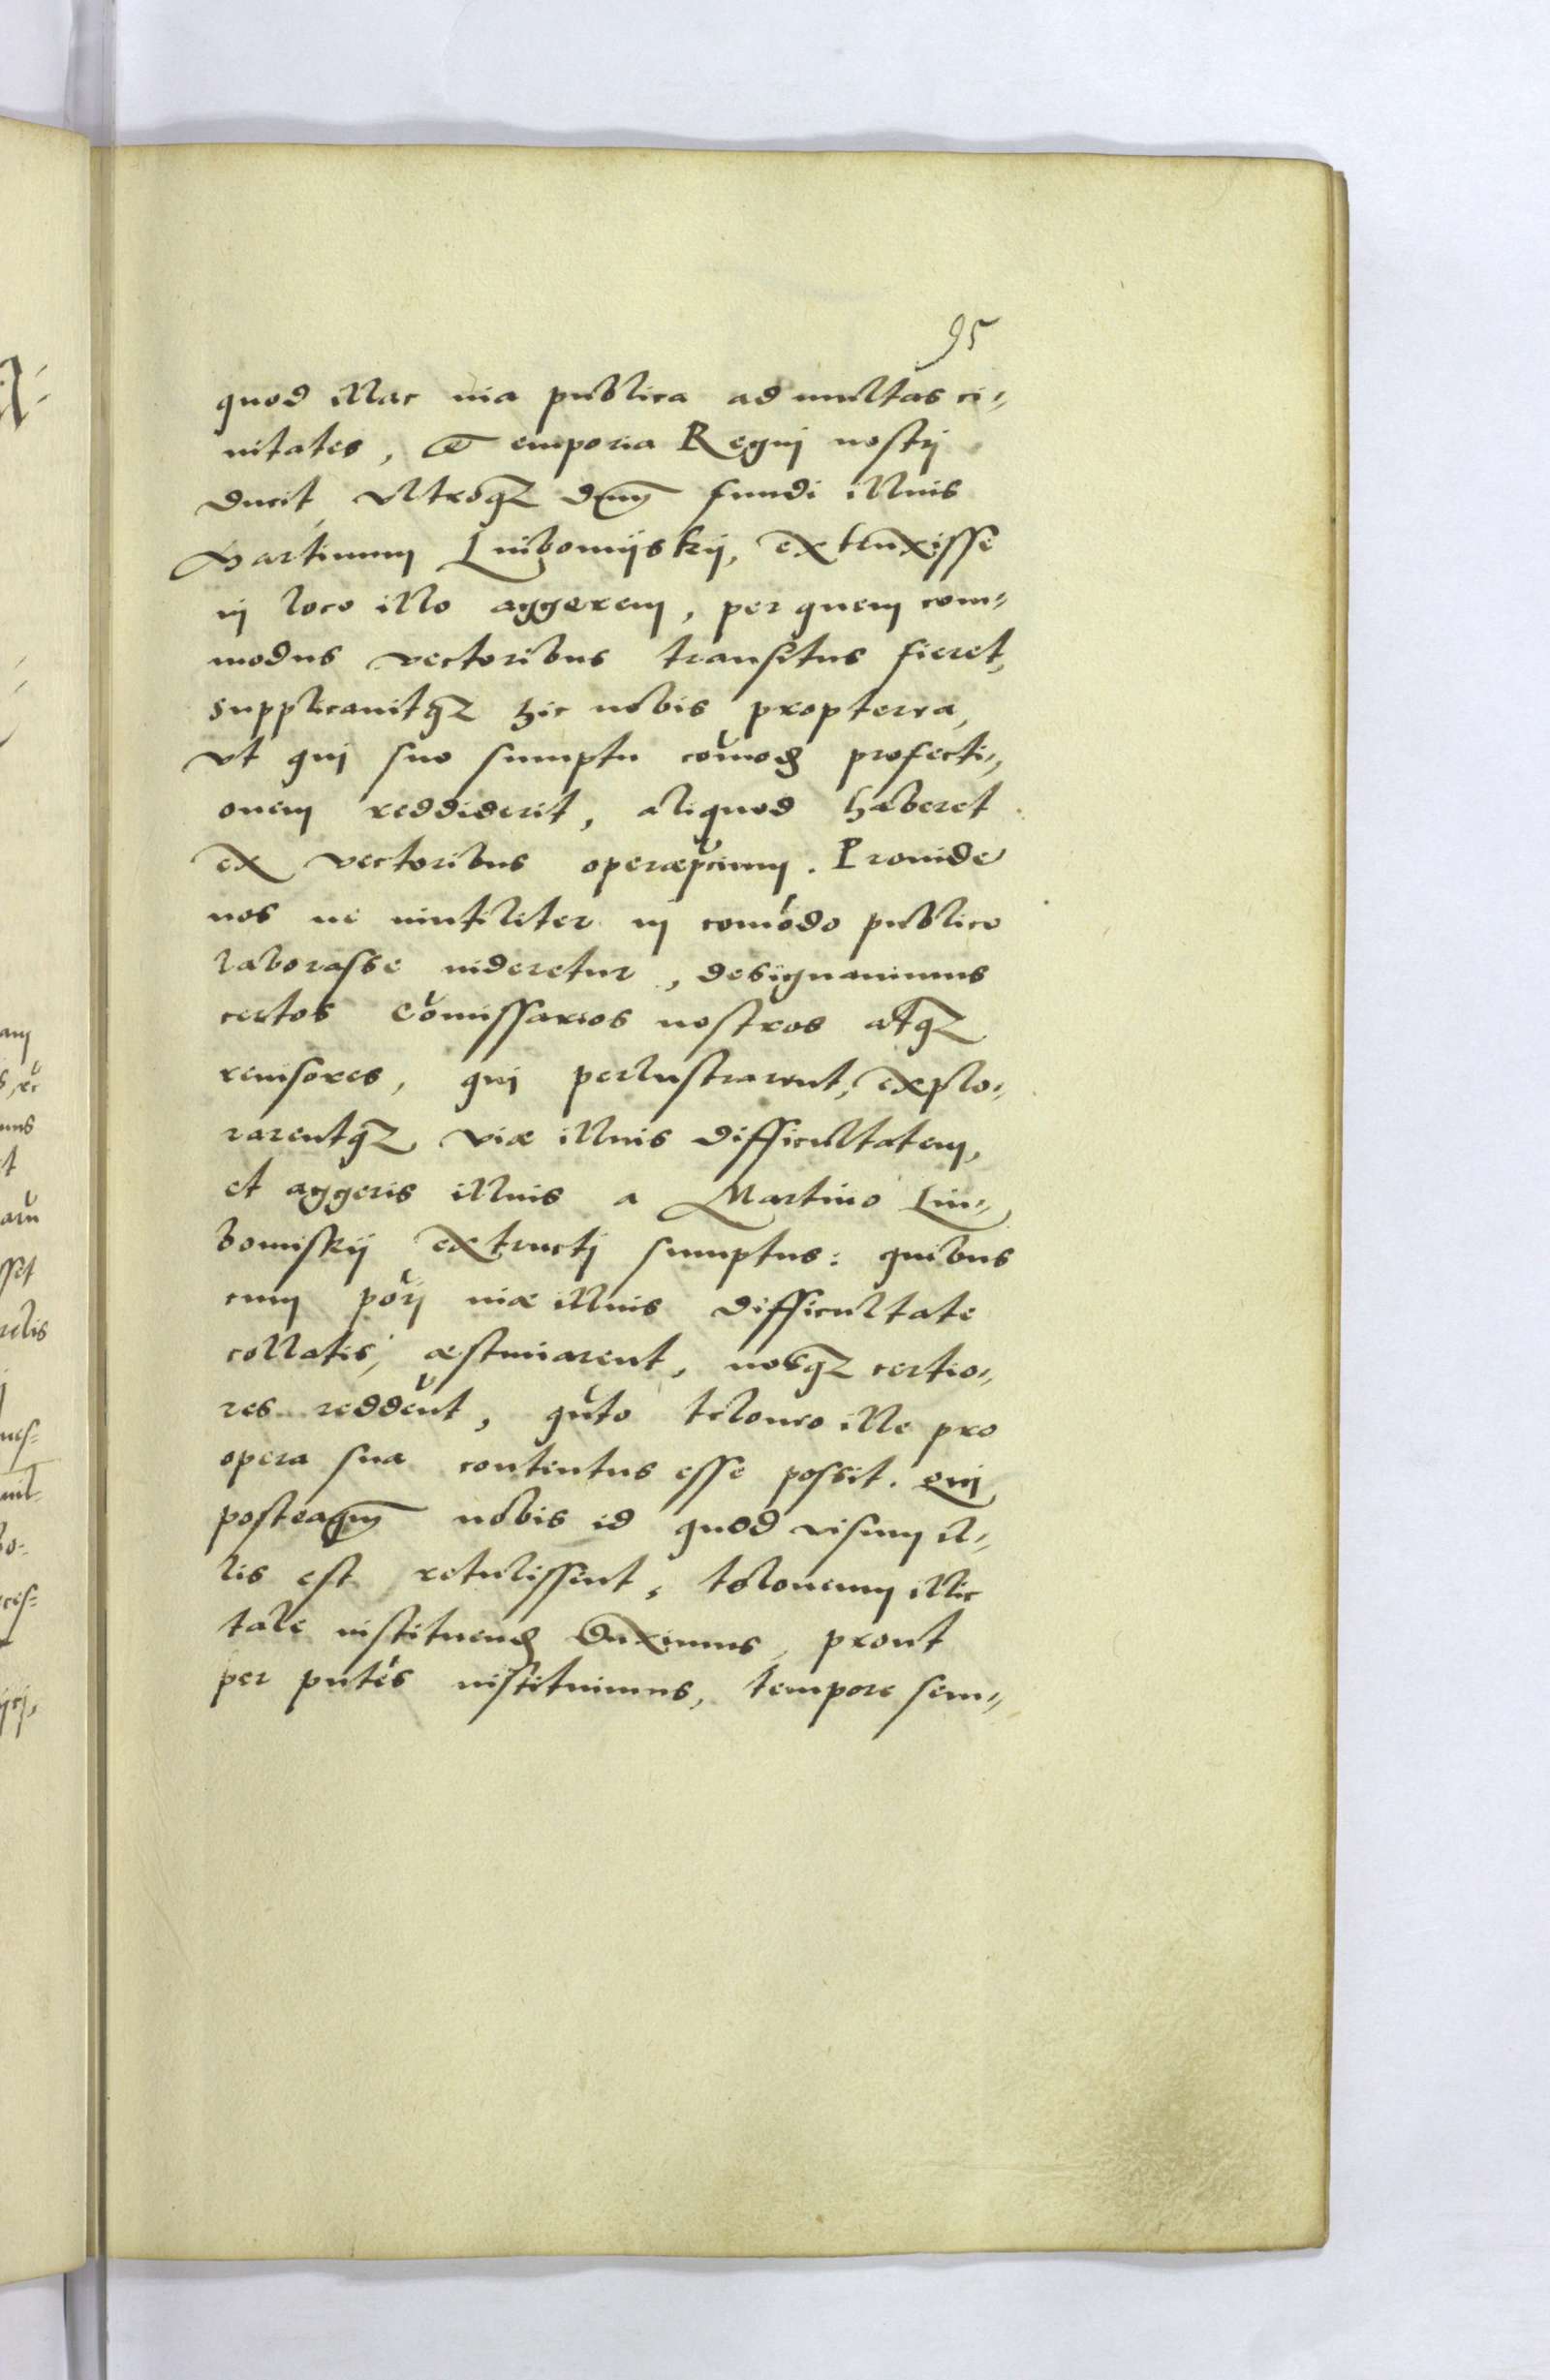 95
quod illac uia publica ad multas ci⸗
uitates, et emporia Regnj nostrj
ducit ultroq3 dnm fundi illius
Martinum Luibomijskij, extruxisse
in loco illo aggerem, per quem com⸗
modus vectoribus transitus fieret,
supplicauitq3 hic nobis propterea,
vt quj suo sumptu comod profecti⸗
onem reddiderit, aliquod haberet
ex vectoribus operæpcium. Prouide
nos ne inutiliter in comodo publico
laborasse uideretur, designauimus
certos Comissarios nostros atq3
reuisores, quj perlustrarent, explo⸗
rarentq3 viæ illius difficultatem,
et aggeris illius a Martino Lui⸗
bomiskij extructj sumptus: quibus
cum porj uiæ illius difficultate
collatis, æstimarent, nosq3 certio⸗
res reddent, quto teloneo ille pro
opera sua contentus esse possit. Quj
posteaqm nobis id quod visum il⸗
lis est retulissent, teloneum illic
tale instituend duximus, prout
per pntes instituimus, tempore sem⸗